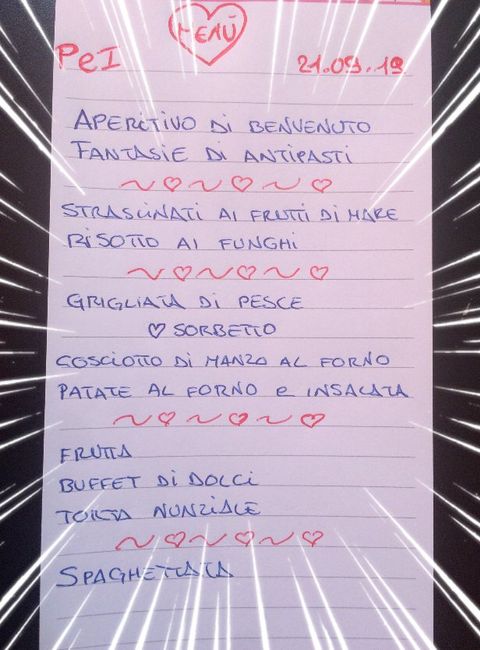 MENÙ
PeI 21.09.19
APERITIVO DI BENVENUTO
FANTASIE DI ANTIPASTI
STRASCINATI AI FRUTTI DI MARE
RISOTTO AI FUNGHI
GRIGLIATA DI PESCE
SORBETTO
COSCIOTTO DI MANZO AL FORNO
PATATE AL FORNO e INSALATA
FRUTTA
BUFFET DI DOLCI
TORTA NUNZIALE
SPAGHETTATA